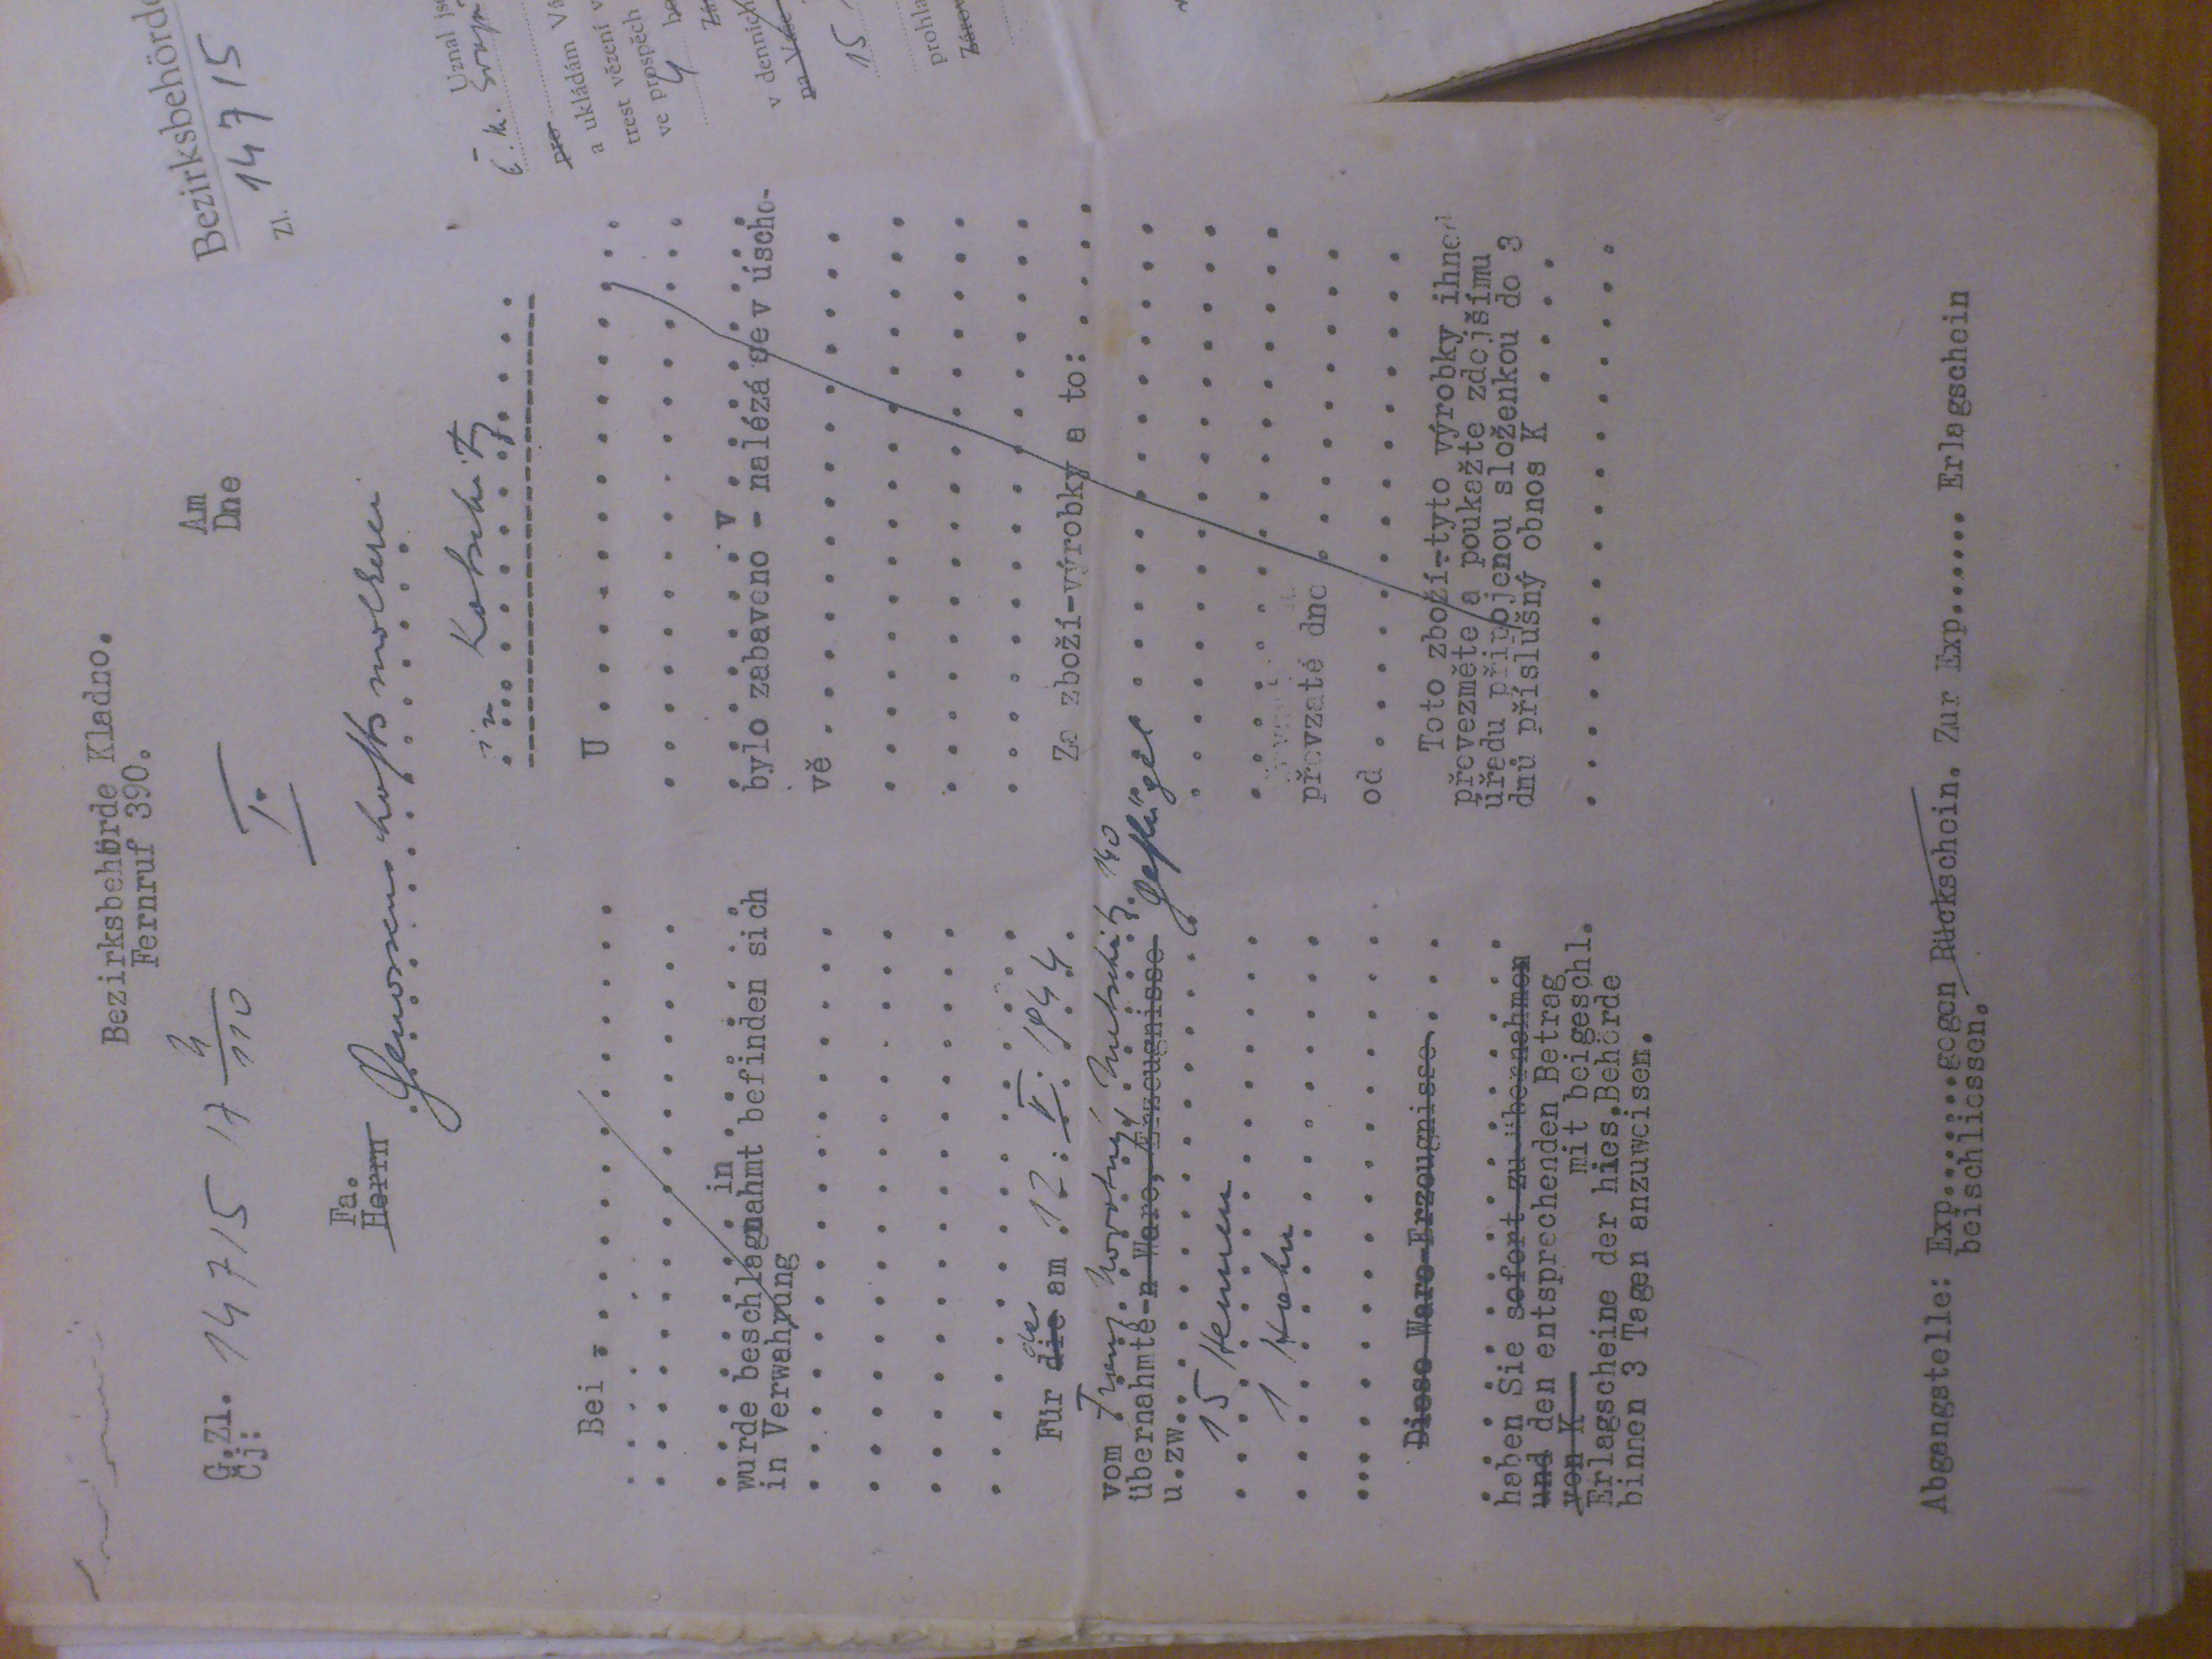 Bezirksbehörde Kladno.
Fernruf 390.
G.Zl. 14715 17 4/110
Čj:
Am
Dne
I.
Fa.
Herrn Genossenschaftsmolkerei
in Kotschitz
Bei
in
wurde beschlagnahmt befinden sich
in Verwahrung
Für die das am 12. V. 1944.
vom Franz Novotný, 140
übernahmte-n Ware, Erzeugnisse Geflügel
u.zw..
15 Hennen
1 Hahn
Diese Ware-Erzeugnisse
haben Sie sofort zu übernahmen
und den entsprechenden Betrag
von K mit beigeschl.
Erlagscheine der hies.Behörde
binnen 3 Tagen anzuweisen.
U
v
bylo zabaveno - nalézá se v úscho-
vě
Za zboží-výrobky a to:
převzaté dne
od
Toto zboží-tyto výrobky ihned
převezměte a poukažte zdejšímu
úřadu připojenou složenkou do 3
dnů příslušný obnos K
Abgangstelle: Exp.......gegen Rückschein. Zur Exp...... Erlagschein
beischliessen.
Bezirksbehörde
Zl. 14715
Uznal
č. k.
pro
a ukládám
trest vězení v
ve prospěch
4
v denních
na Vaše
15